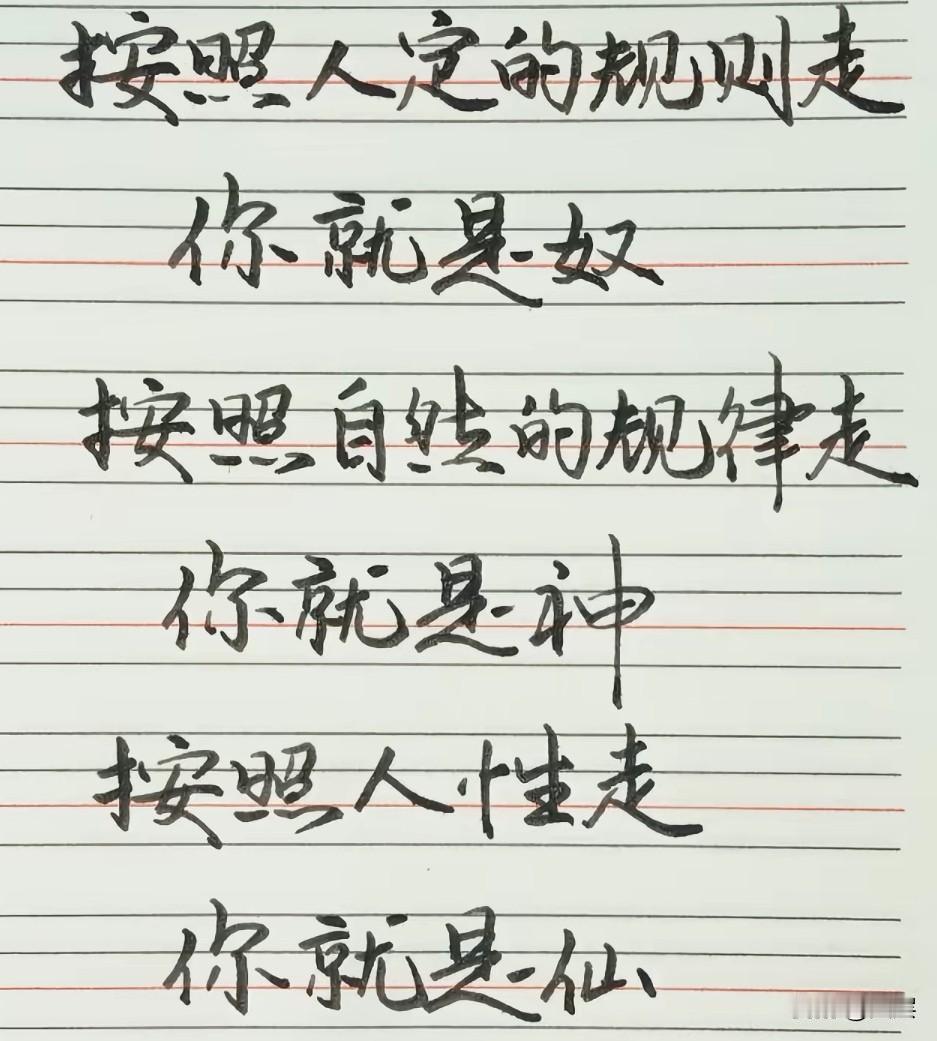 按照人定的规则走
你就是奴
按照自然的规律走
你就是神
按照人性走
你就是仙